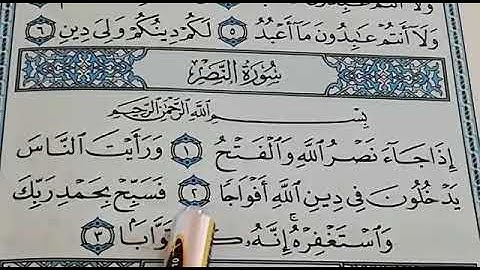 وَلَآ أَنتُمْ عَـٰبِدُونَ مَآ أَعْبُدُ ٥ لَكُمْ دِينُكُمْ وَلِىَ دِينِ ٦
سُورَةُ النَّصْرِ
بِسْمِ ٱللَّهِ ٱلرَّحْمَـٰنِ ٱلرَّحِيمِ
إِذَا جَآءَ نَصْرُ ٱللَّهِ وَٱلْفَتْحُ ١ وَرَأَيْتَ ٱلنَّاسَ
يَدْخُلُونَ فِى دِينِ ٱللَّهِ أَفْوَاجًا ٢ فَسَبِّحْ بِحَمْدِ رَبِّكَ
وَٱسْتَغْفِرْهُ ۚ إِنَّهُۥ تَوَّابًۢا ٣